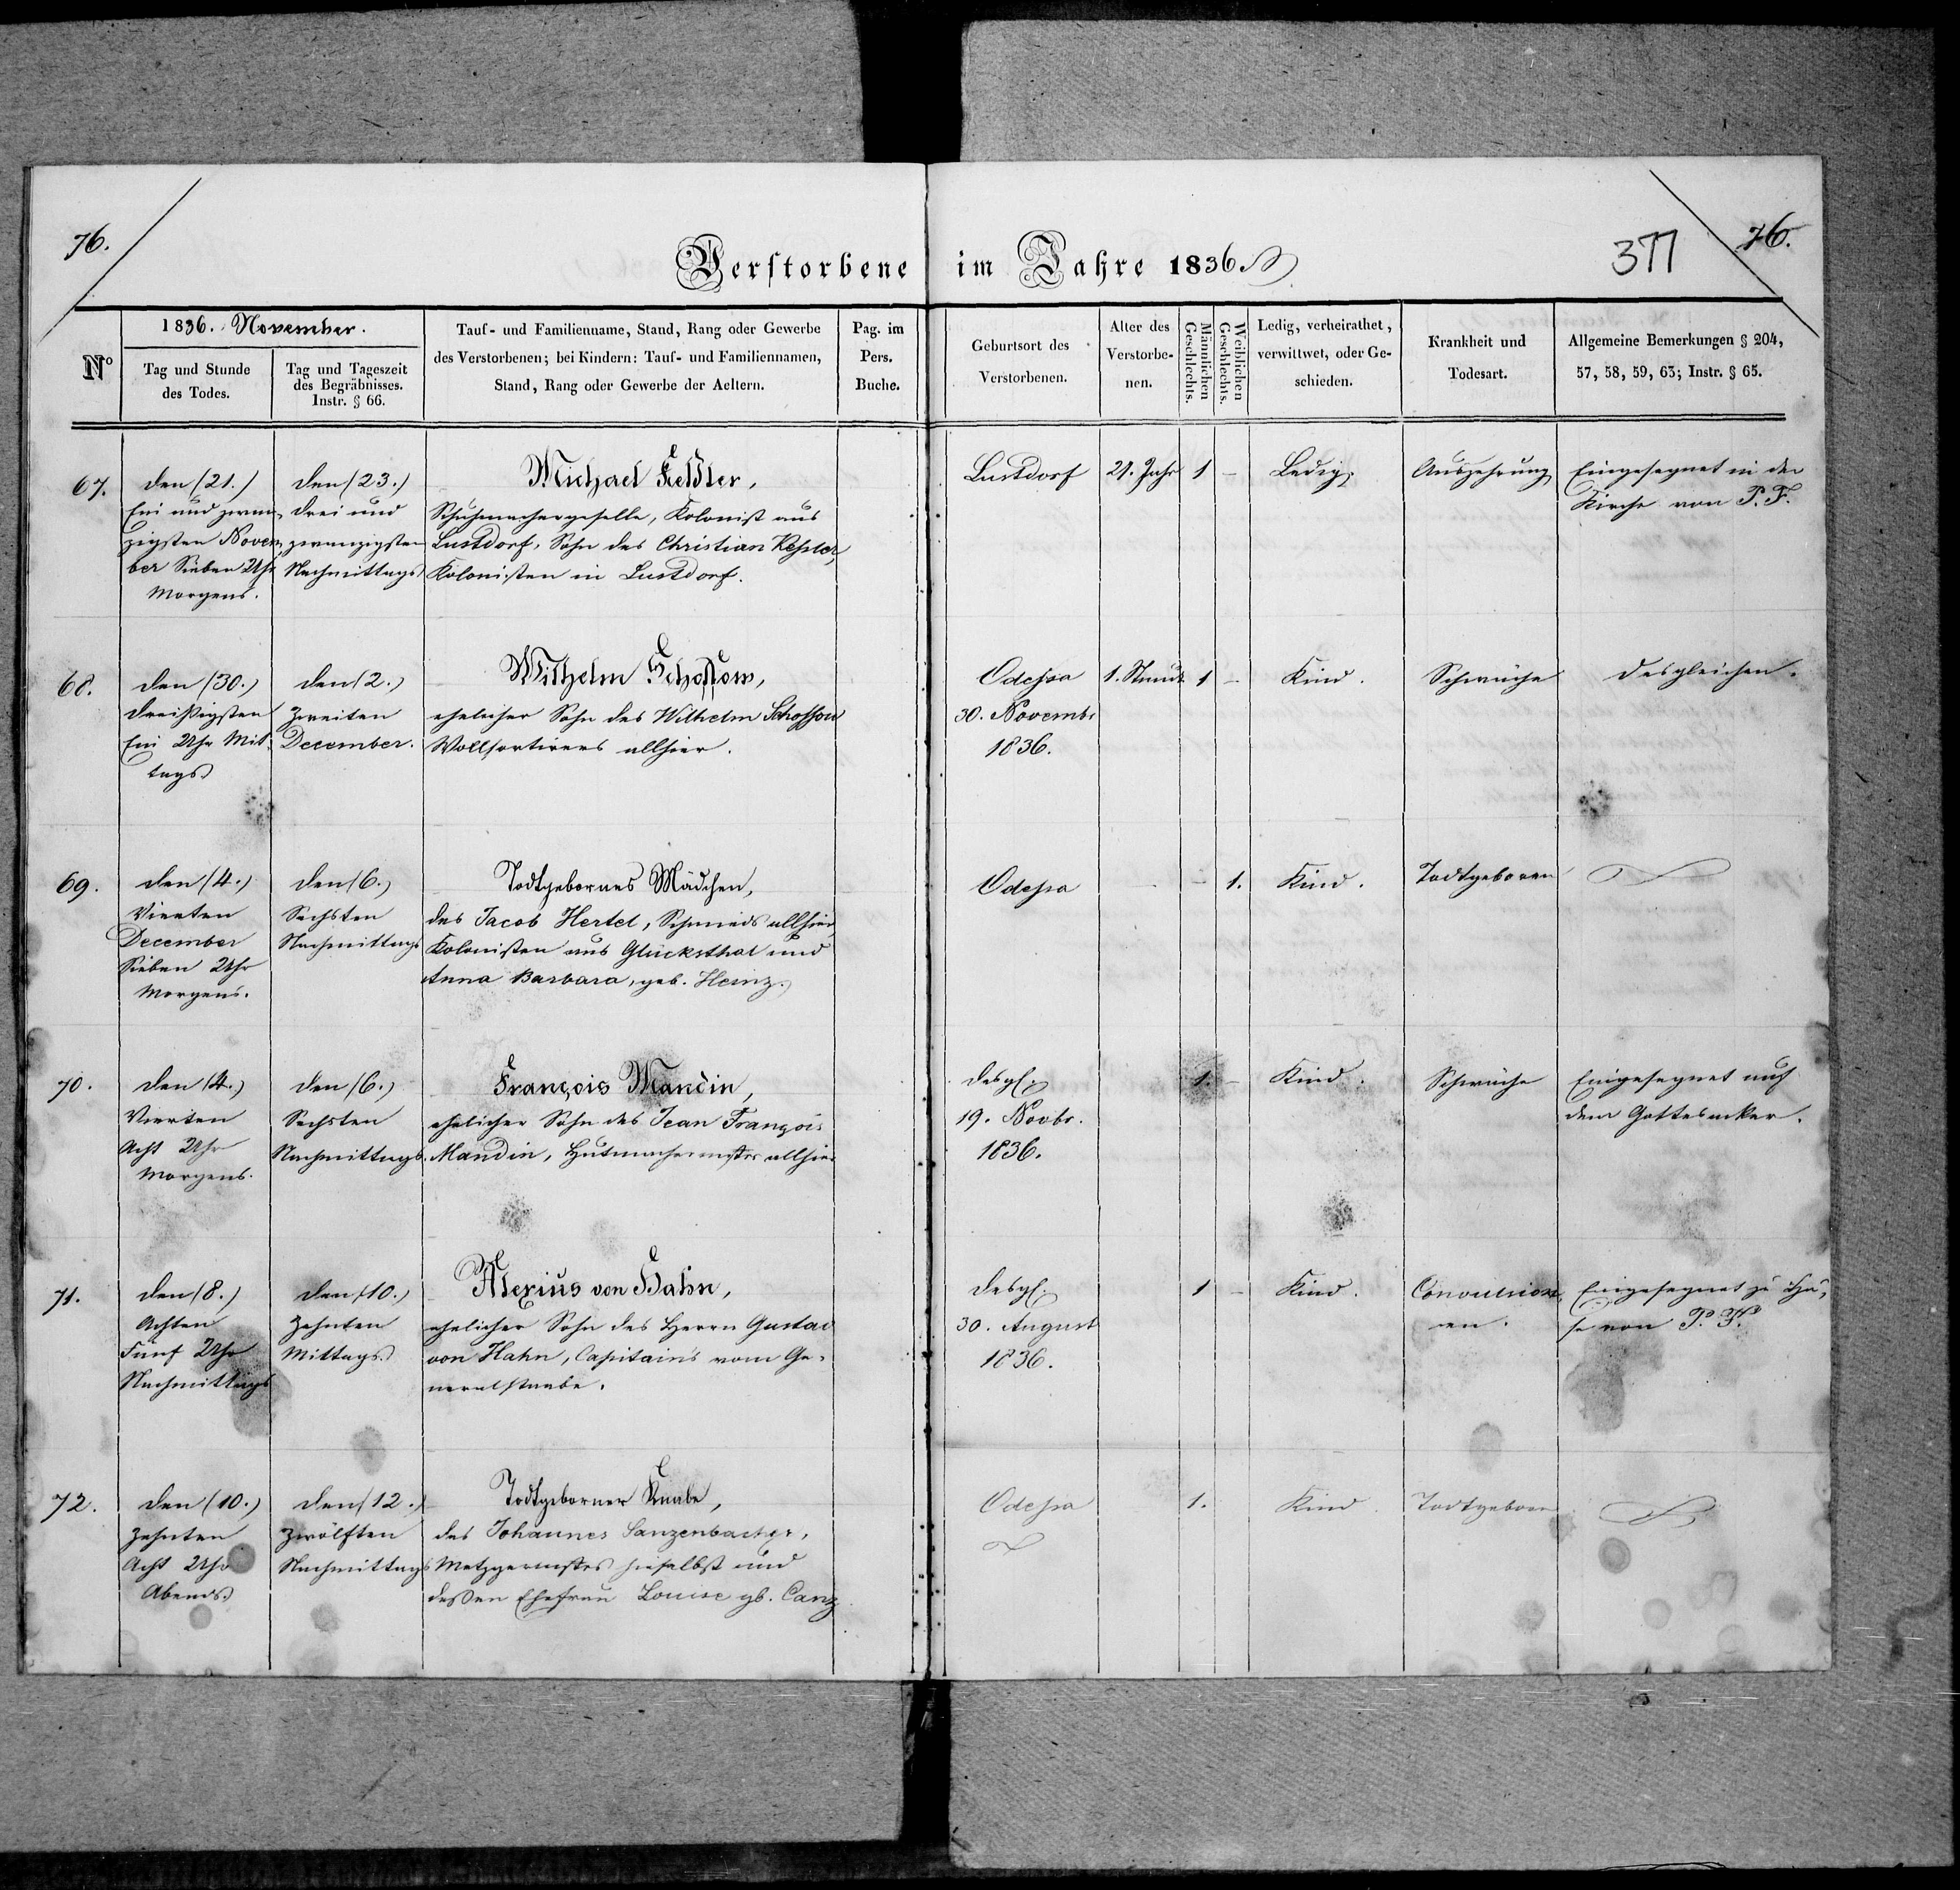 76.
Verstorbene im Jahre 1836
377
76.
No
1836. November.
Tag und Stunde des Todes.
Tag und Tageszeit des Begräbnisses. Instr. § 66.
Tauf- und Familienname, Stand, Rang oder Gewerbe
des Verstorbenen; bei Kindern: Tauf- und Familiennamen,
Stand, Rang oder Gewerbe der Aeltern.
Pag. im Pers. Buche.
Geburtsort des Verstorbenen.
Alter des Verstorbe-nen.
Männlichen Geschlechts.
Weiblichen Geschlechts.
Ledig, verheirathet, verwittwet, oder Ge-schieden.
Krankheit und Todesart.
Allgemeine Bemerkungen § 204,
57, 58, 59, 63; Instr. § 65.
67.
den (21.)
Ein und zwan-
zigsten Novem
ber Sieben Uhr
Morgens.
den (23.)
drei und
zwanzigsten
Nachmittags
Michael Keßler,
Schuhmachergeselle, Kolonist aus
Lustdorf, Sohn des Christian Keßler,
Kolonisten in Lustdorf.
Lustdorf
21. Jahr
1
–
Ledig.
Auszehrung
Eingesegnet in der
Kirche von P. F.
68.
den (30.)
dreißigsten
Ein Uhr Mit-
tags
den (2.)
Zweiten
December.
Wilhelm Schossow,
ehelicher Sohn des Wilhelm Schossow
Wollsortirers allhier.
Odessa
30. Novembr
1836.
1. Stunde
1
–
Kind.
Schwäche
desgleichen.
69.
den (4.)
Vierten
December
Sieben Uhr
Morgens.
den (6.)
Sechsten
Nachmittags
Todtgebornes Mädchen,
des Jacob Hertel, Schmieds allhier,
Kolonisten aus Glücksthal und
Anna Barbara, geb. Heinz.
Odessa
–
1.
Kind.
Todtgeboren
70.
den (4.)
Vierten
Acht Uhr
Morgens.
den (6.)
Sechsten
Nachmittags.
François Mandin,
ehelicher Sohn des Jean François
Mandin, Hutmachermstrs allhier
desgl.
19. Novbr.
1836.
1.
–
Kind.
Schwäche
Eingesegnet auf
dem Gottesacker.
71.
den (8.)
Achten
Fünf Uhr
Nachmittags
den (10.)
Zehnten
Mittags.
Alexius von Hahn,
ehelicher Sohn des Herrn Gustav
von Hahn, Capitains vom Ge-
neralstaabe.
desgl.
30. August
1836.
1
–
Kind.
Convulsion
en.
Eingesegnet zu Hau-
se von P. F.
72.
den (10.)
Zehnten
Acht Uhr
Abends.
den (12.)
Zwölften
Nachmittags
Todtgeborner Knabe,
des Johannes Sanzenbacher,
Metzgermstrs hieselbst und
dessen Ehefrau Louise gb. Canz
Odessa
1.
Kind.
Todtgeboren